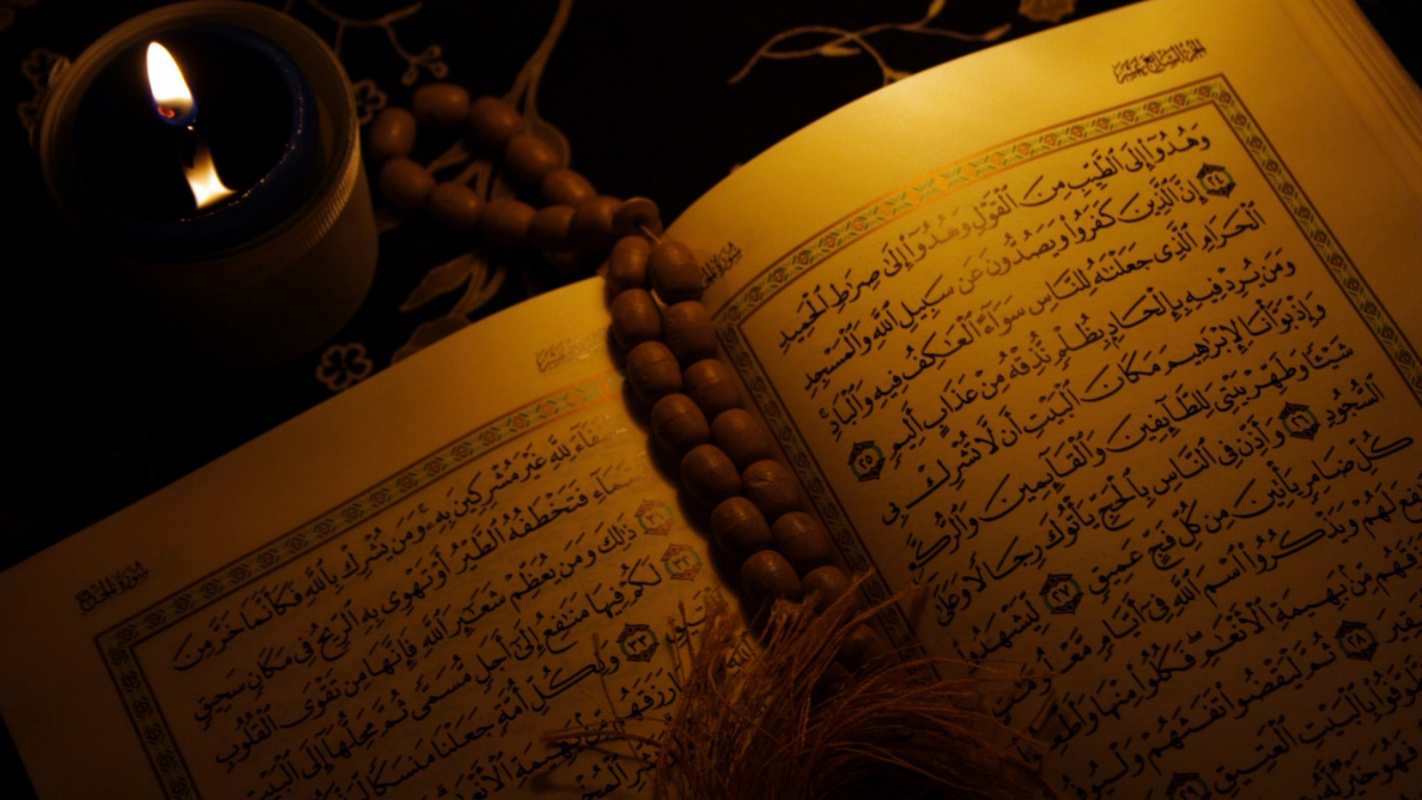 الجزء السابع عشر
وَهُدُوٓا۟ إِلَى ٱلطَّيِّبِ مِنَ ٱلْقَوْلِ وَهُدُوٓا۟ إِلَىٰ صِرَٰطِ ٱلْحَمِيدِ
٢٤ إِنَّ ٱلَّذِينَ كَفَرُوا۟ وَيَصُدُّونَ عَن سَبِيلِ ٱللَّهِ وَٱلْمَسْجِدِ
ٱلْحَرَامِ ٱلَّذِى جَعَلْنَٰهُ لِلنَّاسِ سَوَآءً ٱلْعَٰكِفُ فِيهِ وَٱلْبَادِ ۚ
وَمَن يُرِدْ فِيهِ بِإِلْحَادٍۭ بِظُلْمٍ نُّذِقْهُ مِنْ عَذَابٍ أَلِيمٍ ٢٥
وَإِذْ بَوَّأْنَا لِإِبْرَٰهِيمَ مَكَانَ ٱلْبَيْتِ أَن لَّا تُشْرِكْ بِى
شَيْـًٔا وَطَهِّرْ بَيْتِىَ لِلطَّآئِفِينَ وَٱلْقَآئِمِينَ وَٱلرُّكَّعِ
ٱلسُّجُودِ ٢٦ وَأَذِّن فِى ٱلنَّاسِ بِٱلْحَجِّ يَأْتُوكَ رِجَالًا وَعَلَىٰ
كُلِّ ضَامِرٍ يَأْتِينَ مِن كُلِّ فَجٍّ عَمِيقٍ ٢٧ لِّيَشْهَدُوا۟
لَهُمْ وَيَذْكُرُوا۟ ٱسْمَ ٱللَّهِ فِىٓ أَيَّامٍ
مِّنۢ بَهِيمَةِ ٱلْأَنْعَٰمِ ۖ فَكُلُوا۟ مِنْهَا
٢٨ ثُمَّ لْيَقْضُوا۟ تَفَثَهُمْ
بِٱلْبَيْتِ ٱلْعَتِيقِ ٢٩
فَهُوَ خَيْرٌ لَّهُۥ
سورة الحج
لِلَّهِ غَيْرَ مُشْرِكِينَ بِهِۦ ۚ وَمَن يُشْرِكْ بِٱللَّهِ فَكَأَنَّمَا خَرَّ مِنَ
فَتَخْطَفُهُ ٱلطَّيْرُ أَوْ تَهْوِى بِهِ ٱلرِّيحُ فِى مَكَانٍ سَحِيقٍ
٣١ ذَٰلِكَ وَمَن يُعَظِّمْ شَعَٰٓئِرَ ٱللَّهِ فَإِنَّهَا مِن تَقْوَى ٱلْقُلُوبِ
٣٢ لَكُمْ فِيهَا مَنَٰفِعُ إِلَىٰٓ أَجَلٍ مُّسَمًّى ثُمَّ مَحِلُّهَآ إِلَى ٱلْبَيْتِ
٣٣ وَلِكُلِّ أُمَّةٍ جَعَلْنَا مَنسَكًا